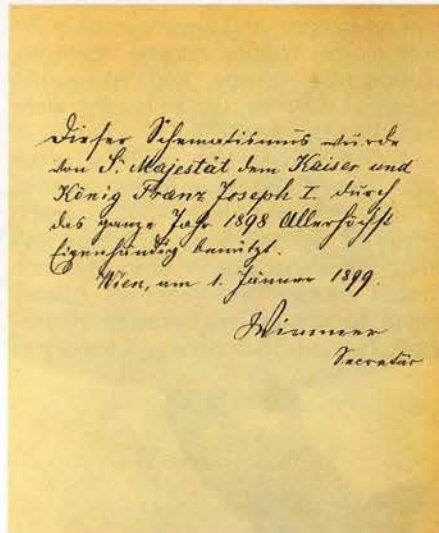 Dieser Schematismus wurde
von S. Majestät dem Kaiser und
König Franz Joseph I. durch
das ganze Jahr 1898 Allerhöchst
Eigenhändig benützt.
Wien, am 1. Jänner 1899.
Wimmer
Secretär